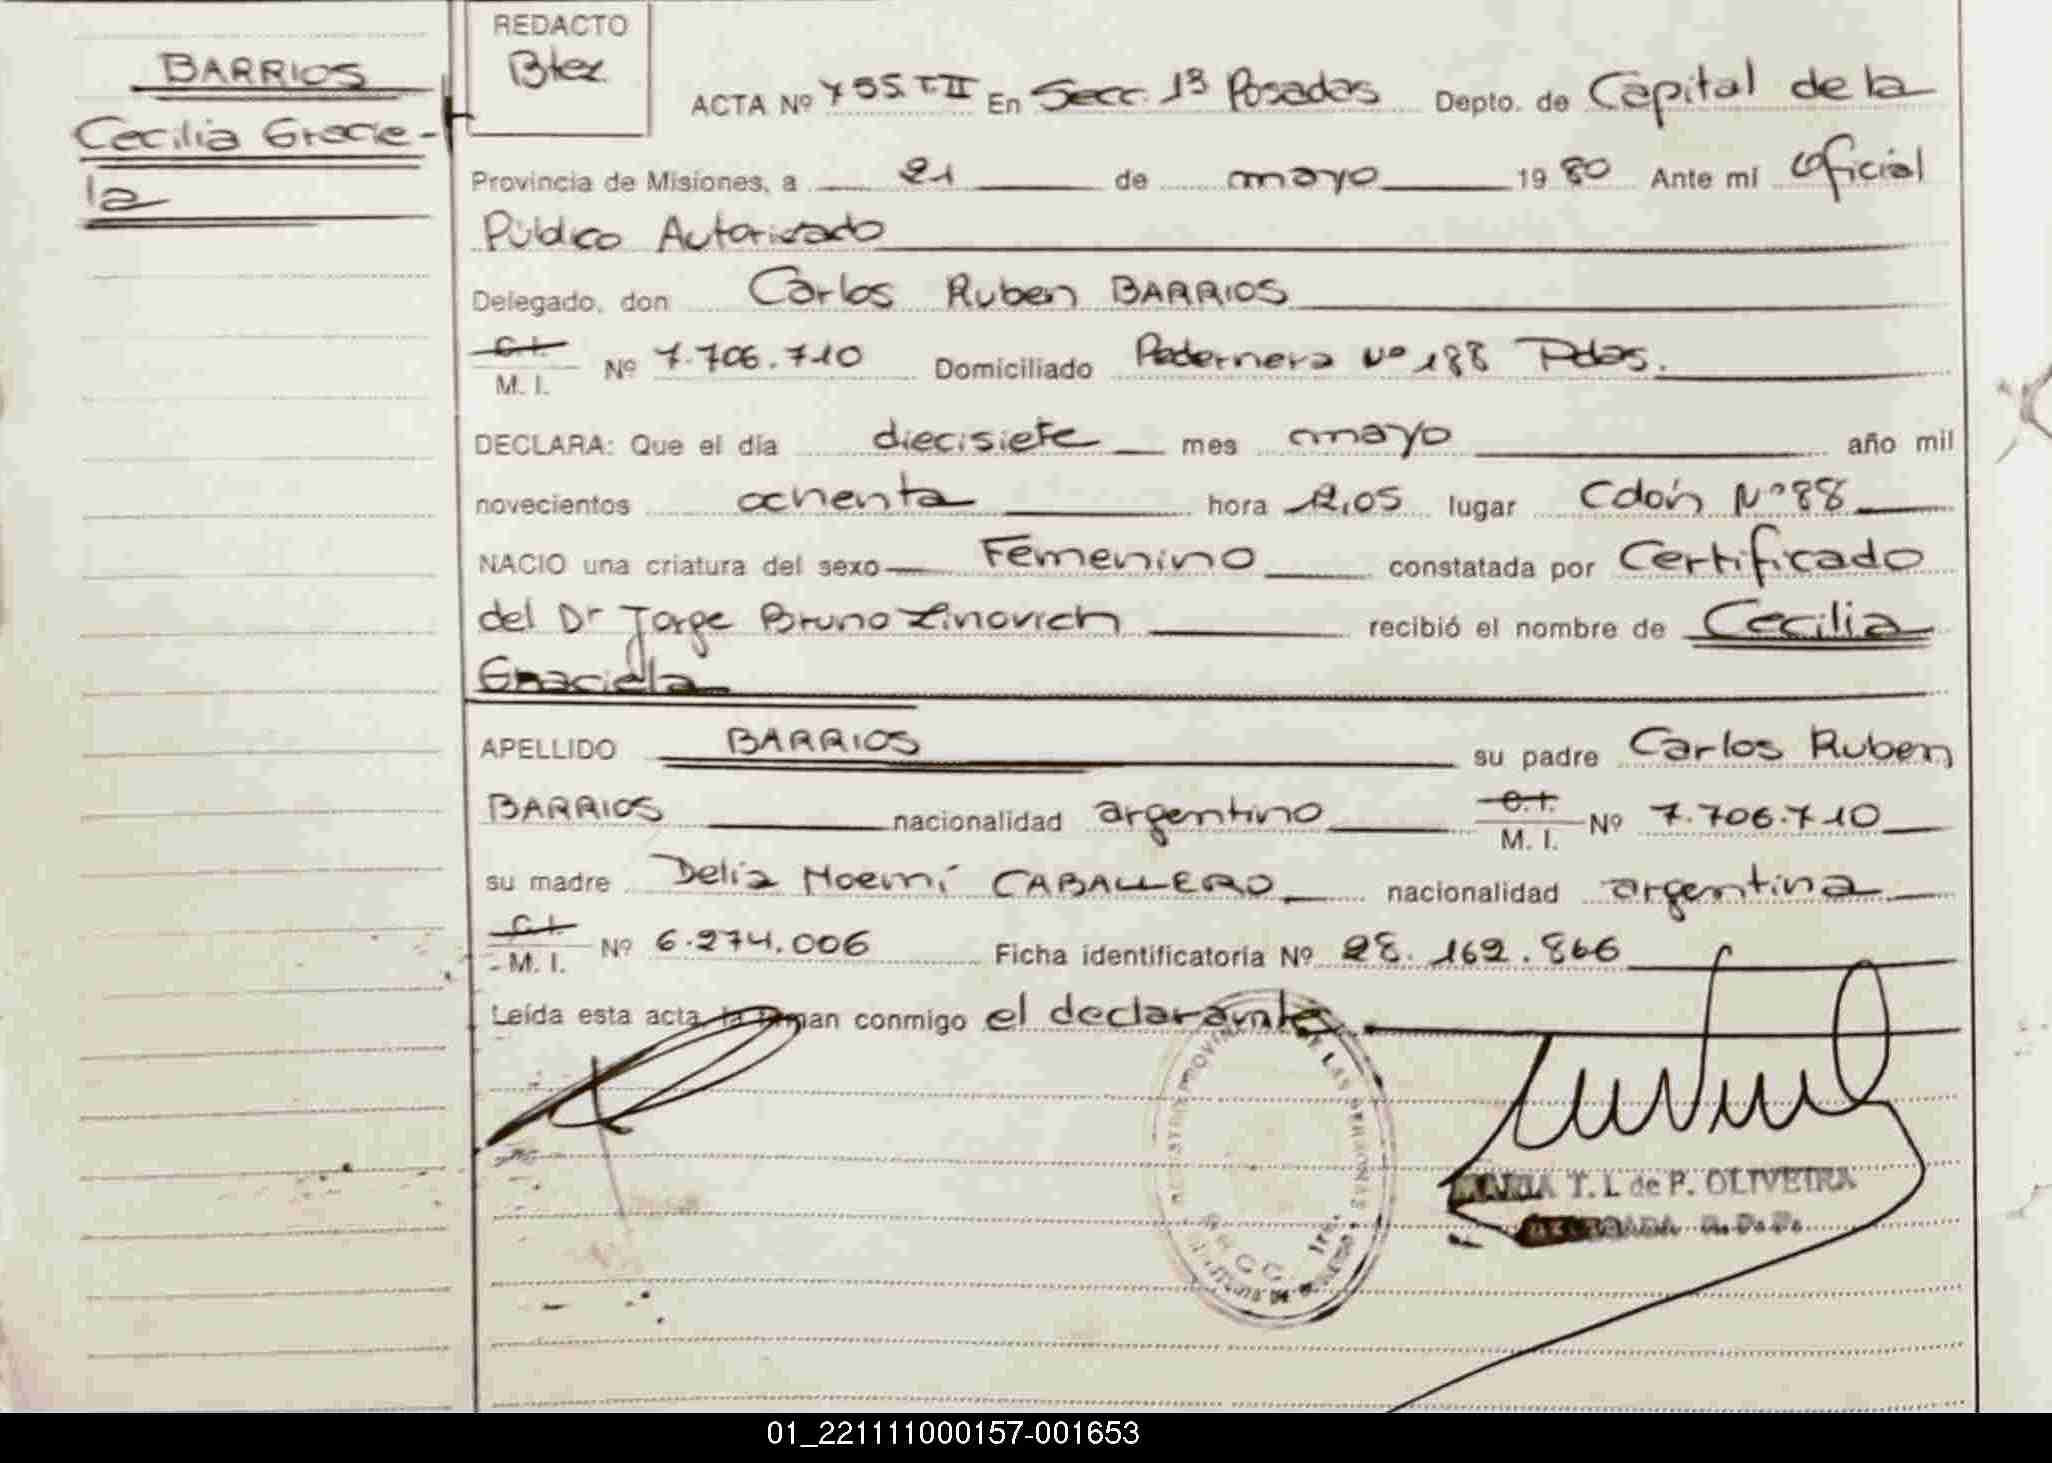 BARRIOS
Cecilia Gracie-
la
REDACTO
ACTA Nº 755 T.II En Secc. 1ª Posadas Depto. de Capital de la
Provincia de Misiones, a 21 de mayo 1980 Ante mí Oficial
Público Autorizado
Delegado, don Carlos Ruben BARRIOS
C.I. M. I. Nº 7.706.710 Domiciliado Pedernera Nº 188 Pdas.
DECLARA: Que el día diecisiete mes mayo año mil
novecientos ochenta hora 12,05 lugar Cdón Nº 88
NACIO una criatura del sexo Femenino constatada por Certificado
del Dr Jorge Bruno Zinovich recibió el nombre de Cecilia
Graciela
APELLIDO BARRIOS su padre Carlos Ruben
BARRIOS nacionalidad argentino C.I. M. I. Nº 7.706.710
su madre Delia Noemí CABALLERO nacionalidad argentina
C.I. M. I. Nº 6.274.006 Ficha identificatoria Nº 28.162.866
Leída esta acta, la firman conmigo el declarante
DE LAS PERSONAS
SECC. 1ra.
MARIA T. I. de P. OLIVEIRA
DELEGADA R. P. P.
01_221111000157-001653